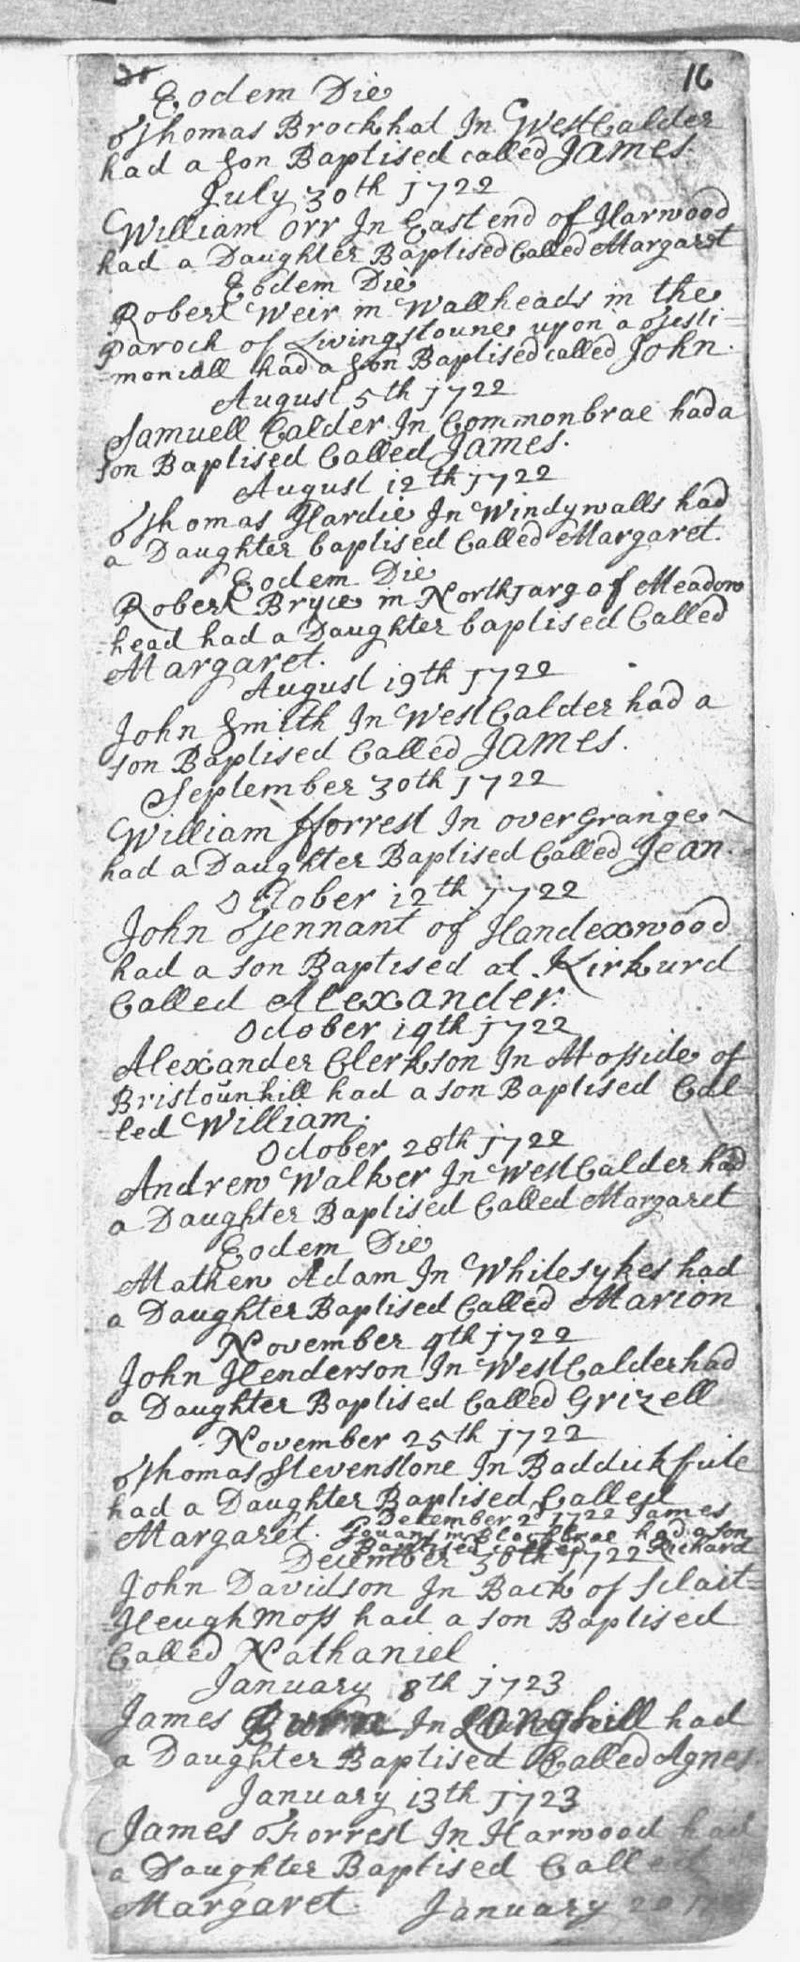 16
Eodem Die
Thomas Brockhat In WestCalder
had a Son Baptised called James.
July 30th 1722
William Orr In Eastend of Harwood
had a Daughter Baptised Called Margaret
Eodem Die
Robert Weir in Wallheads in the
parock of Livingstoune upon a Testi=
=moniall had a Son Baptised called John.
August 5th 1722
Samuell Calder In Commonbrae had a
son Baptised Called James.
August 12th 1722
Thomas Hardie In Windywalls had
a Daughter baptised Called Margaret.
Eodem Die
Robert Bryce in North of Meadow
=head had a Daughter baptised Called
Margaret.
August 19th 1722
John Smith In WestCalder had a
son Baptised Called James.
September 30th 1722
William fforrest In overGrange
had a Daughter Baptised Called Jean.
October 12th 1722
John Tennant of Handexwood
had a son Baptised at Kirkurd
Called Alexander.
October 19th 1722
Alexander Clerkson In Mosside of
Bristounhill had a son Baptised Cal=
=led William.
October 28th 1722
Andrew Walker In WestCalder had
a Daughter Baptised Called Margaret
Eodem Die
Mathew Adam In Whitesykes had
a Daughter Baptised Called Marion
November 4th 1722
John Henderson In WestCalder had
a Daughter Baptised Called Grizell
November 25th 1722
Thomas Stevenstone In Baddickfute
had a Daughter Baptised Called
December 2d 1722 James
Margaret. in Blackbrae had a son
Baptised called Richard
December 30th 1722
John Davidson In Back of Sclait=
=Heugh Moss had a son Baptised
Called Nathaniel
January 8th 1723
James Burn In Longhill had
a Daughter Baptised Called Agnes.
January 13th 1723
James Forrest In Harwood had
a Daughter Baptised Called
Margaret January 20